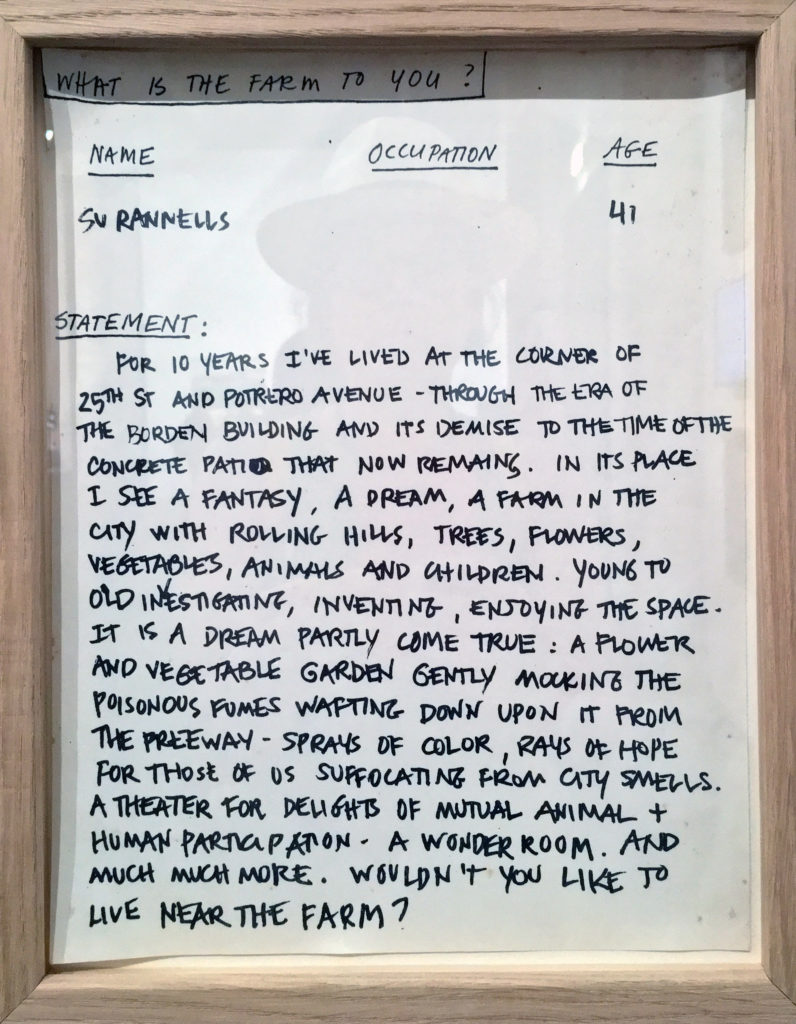 WHAT IS THE FARM TO YOU?
NAME OCCUPATION AGE
SU RANNELLS 41
STATEMENT:
FOR 10 YEARS I'VE LIVED AT THE CORNER OF
25TH ST AND POTRERO AVENUE - THROUGH THE ERA OF
THE BORDEN BUILDING AND ITS DEMISE TO THE TIME OF THE
CONCRETE PATIO THAT NOW REMAINS. IN ITS PLACE
I SEE A FANTASY, A DREAM, A FARM IN THE
CITY WITH ROLLING HILLS, TREES, FLOWERS,
VEGETABLES, ANIMALS AND CHILDREN. YOUNG TO
OLD INVESTIGATING, INVENTING, ENJOYING THE SPACE.
IT IS A DREAM PARTLY COME TRUE: A FLOWER
AND VEGETABLE GARDEN GENTLY MOCKING THE
POISONOUS FUMES WAFTING DOWN UPON IT FROM
THE FREEWAY - SPRAYS OF COLOR, RAYS OF HOPE
FOR THOSE OF US SUFFOCATING FROM CITY SMELLS.
A THEATER FOR DELIGHTS OF MUTUAL ANIMAL +
HUMAN PARTICIPATION - A WONDER ROOM. AND
MUCH MUCH MORE. WOULDN'T YOU LIKE TO
LIVE NEAR THE FARM?